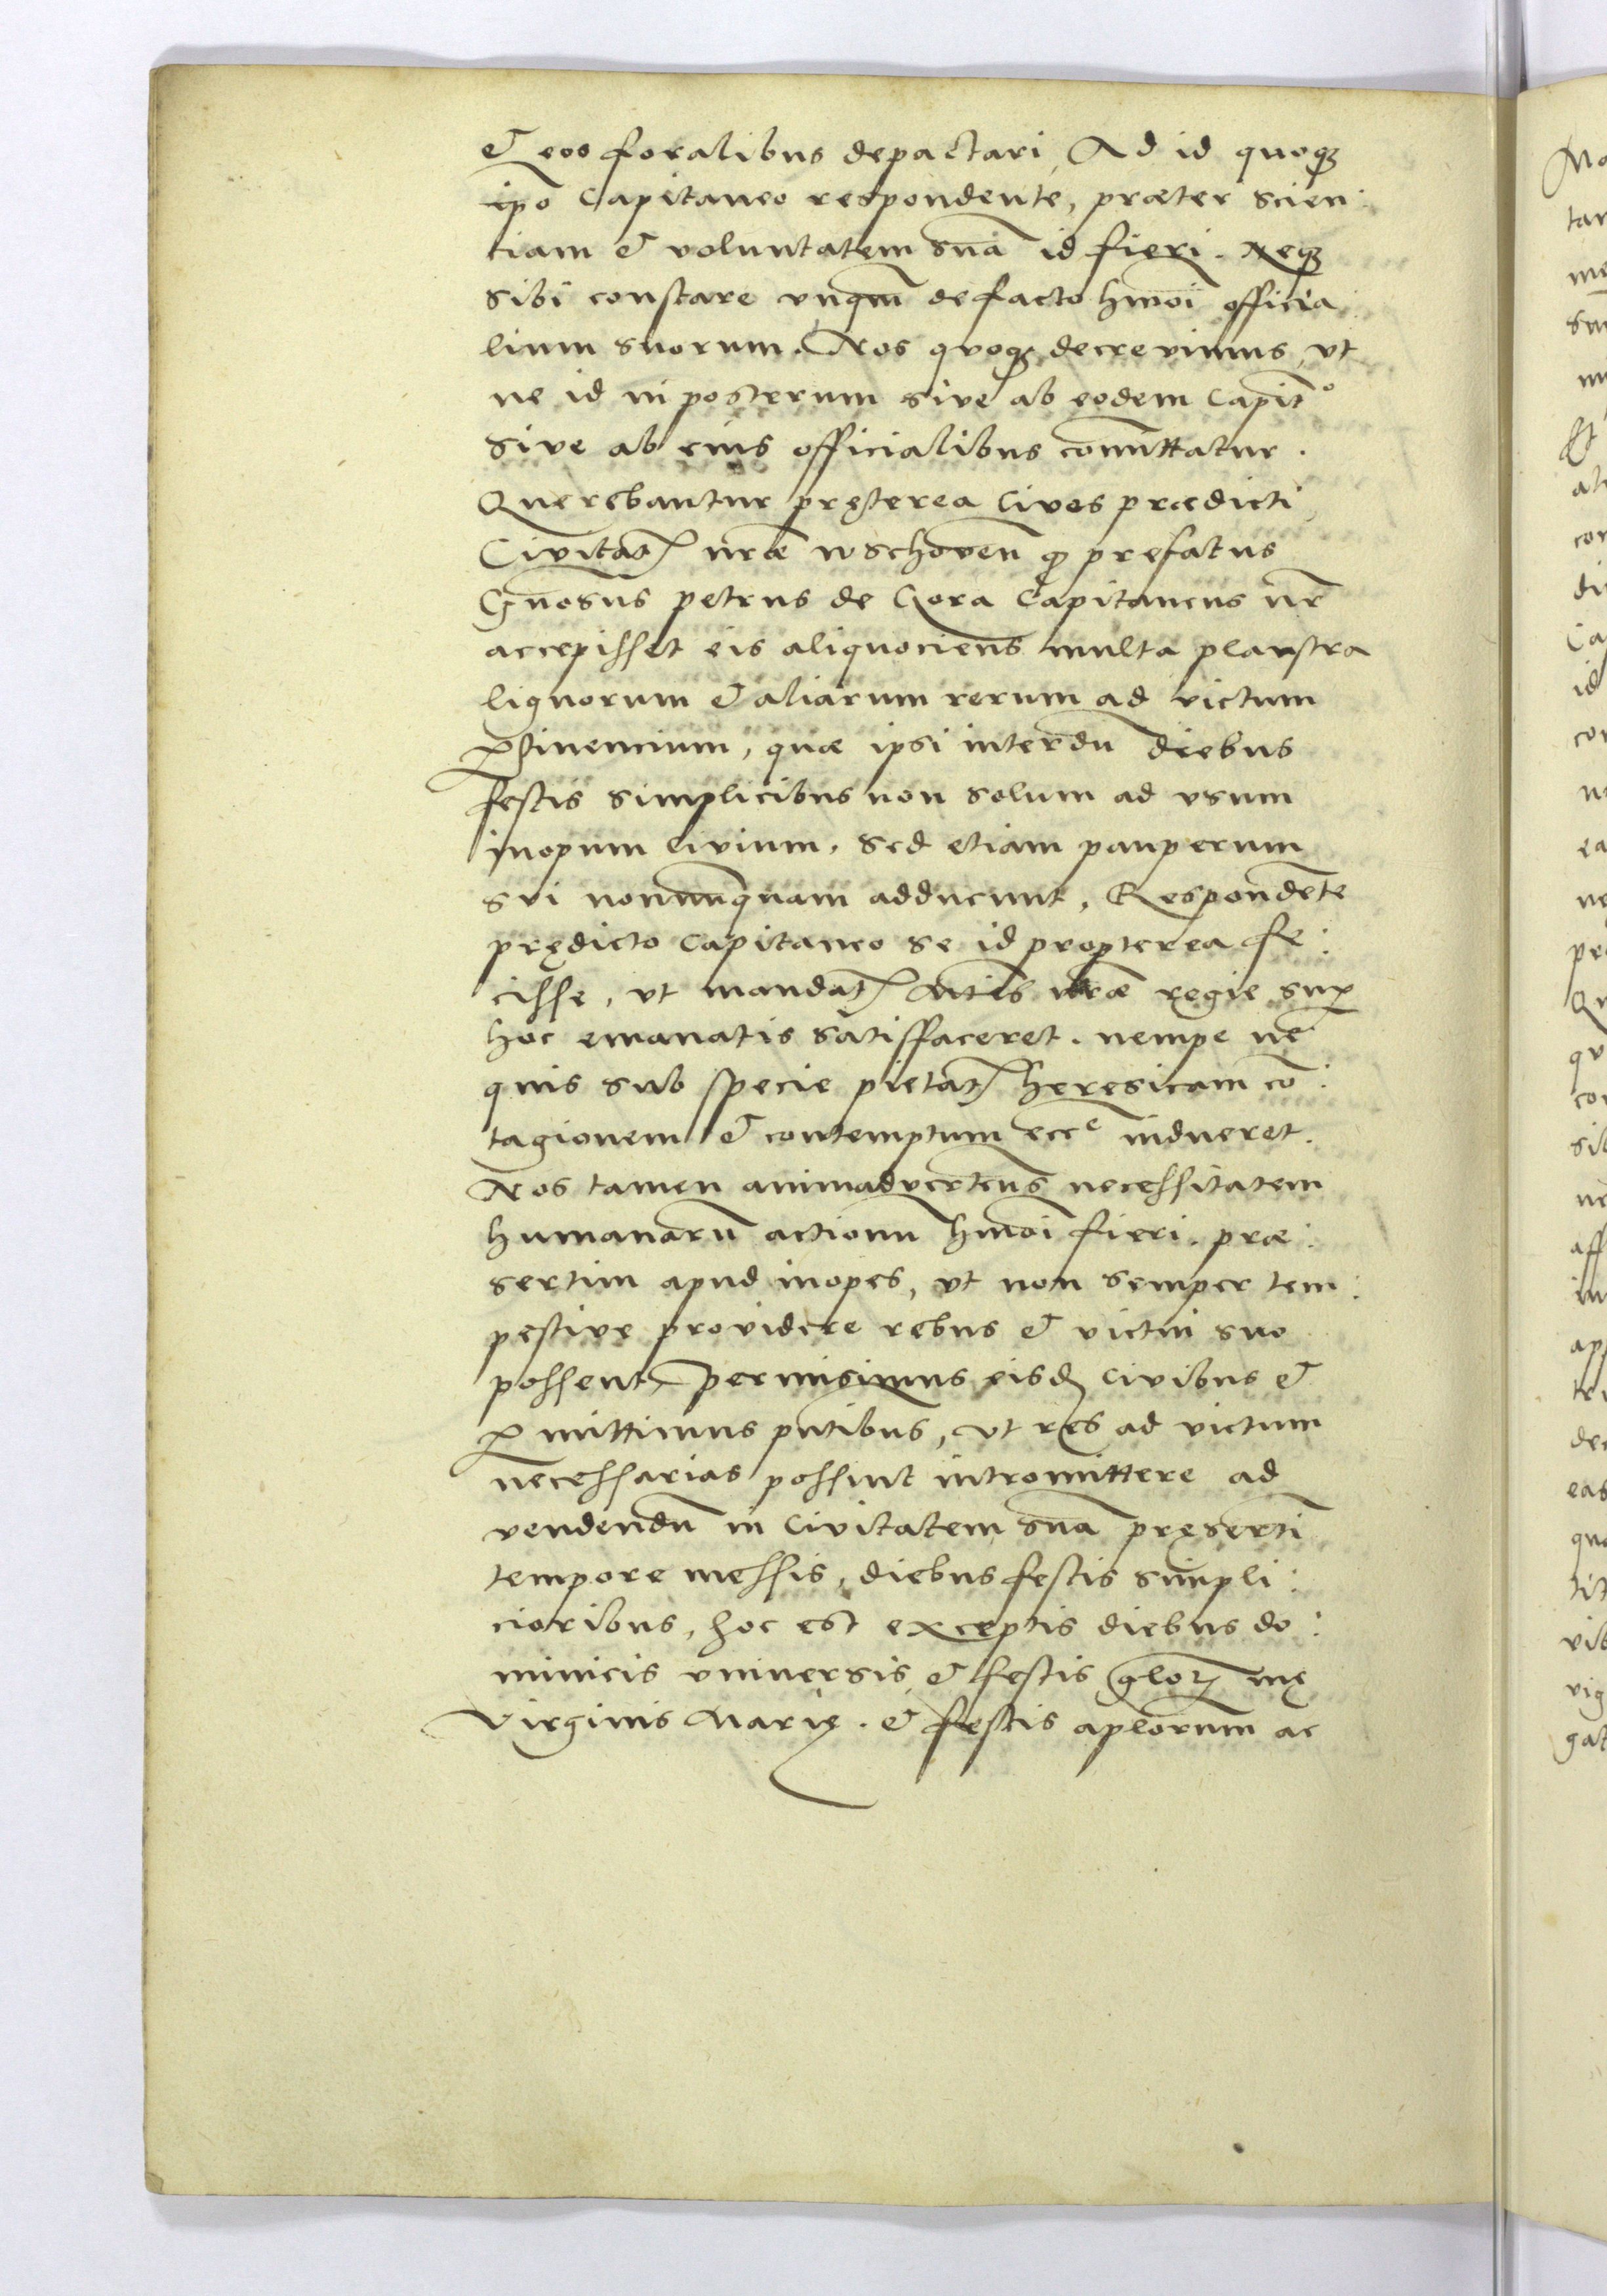 & eos foralibus depactari, Ad id quoqȝ
ip̄o Capitaneo respondente, præter scien:
tiam & voluntatem suā id fieri. Neqȝ
sibi constare vnqm̄ de facto hm̄oi officia
lium suorum. Nos quoqȝ decrevimus, vt
ne id in posterum sive ab eodem Capitº
sive ab eius officialibus com̄ittatur.
Querebantur pręterea Cives prædicti
Civitatꝭ nr̄æ wschoven̄ ꝙ prefatus
Gn̄osus petrus de Gora Capitaneus nr̄
accepisset eis aliquociens multa plaustra
lignorum & aliarum rerum ad victum
ꝑtinencium, quæ ipsi interdū diebus
festis simplicibus non solum ad vsum
inopum civium, sed etiam pauperum
sui nonnunquam adducunt, Respondēte
prędicto Capitaneo se id propterea fe:
cisse, vt mandatꝭ Mt̄is nr̄æ regie suꝑ
hoc emanatis satisfaceret. nempe ne
quis sub specie pietatꝭ heresicam cō:
tagionem & contemptum eccᵉ indueret.
Nos tamen animadvertens necessitatem
humanarū actionū hm̄oi fieri. præ:
sertim apud inopes, vt non semper tem:
pestive providere rebus & victui suo
possent, permisimus eisdꝫ Civibus &
ꝑmittimus pn̄tibus, vt res ad victum
necessarias possint intromittere ad
vendendū in Civitatem suā pręsertī
tempore messis, diebus festis simpli:
cioribus, hoc est exceptis diebus do:
minicis vniversis & festis glorꝭ mę
Virginis Marię. & festis apl̄orum ac